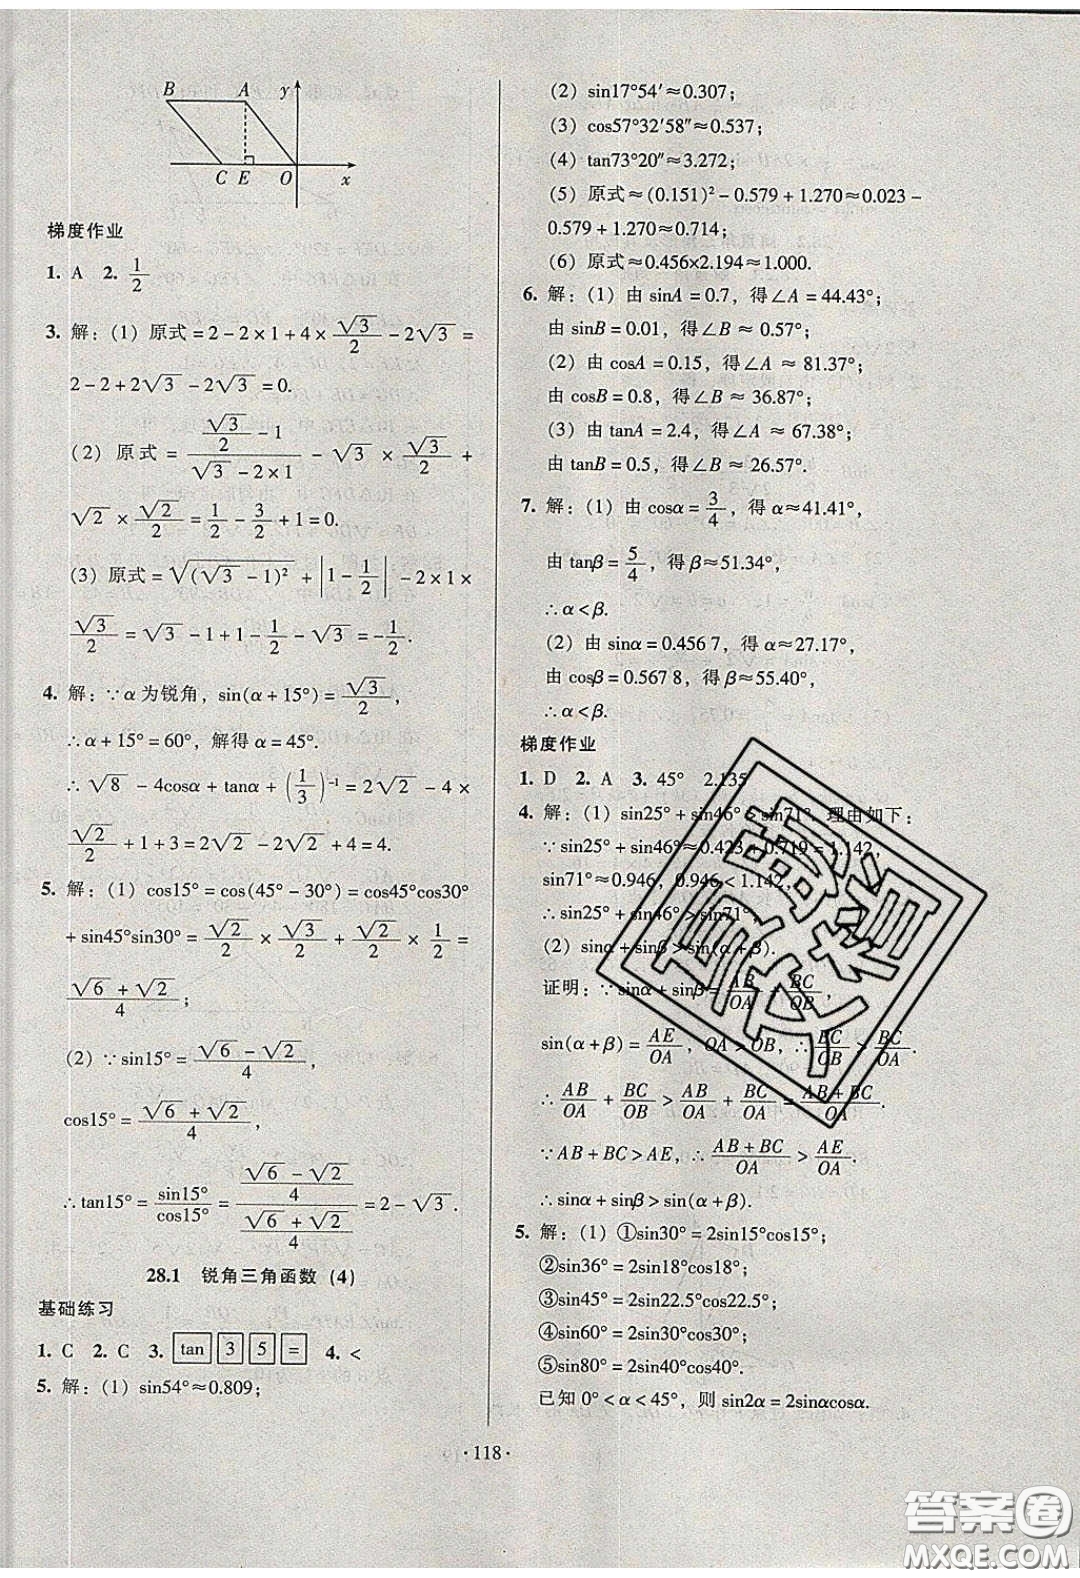 B A y
C E O x
梯度作业
1. A 2. 1/2
3. 解：(1) 原式 = 2 - 2 × 1 + 4 × √3/2 - 2√3 =
2 - 2 + 2√3 - 2√3 = 0.
(2) 原式 = (√3/2 - 1)/(√3 - 2 × 1) - √3 × √3/2 +
√2 × √2/2 = 1/2 - 3/2 + 1 = 0.
(3) 原式 = √((√3 - 1)²) + |1 - 1/2| - 2 × 1 ×
√3/2 = √3 - 1 + 1 - 1/2 - √3 = -1/2.
4. 解：∵α为锐角，sin(α + 15°) = √3/2,
∴α + 15° = 60°，解得 α = 45°.
∴√8 - 4cosα + tanα + (1/3)⁻¹ = 2√2 - 4 ×
√2/2 + 1 + 3 = 2√2 - 2√2 + 4 = 4.
5. 解：(1) cos15° = cos(45° - 30°) = cos45°cos30°
+ sin45°sin30° = √2/2 × √3/2 + √2/2 × 1/2 =
(√6 + √2)/4；
(2) ∵sin15° = (√6 - √2)/4,
cos15° = (√6 + √2)/4,
∴tan15° = sin15°/cos15° = ((√6 - √2)/4)/((√6 + √2)/4) = 2 - √3.
28.1 锐角三角函数 (4)
基础练习
1. C 2. C 3. tan 3 5 = 4. <
5. 解：(1) sin54°≈0.809；
(2) sin17°54′≈0.307；
(3) cos57°32′58″≈0.537；
(4) tan73°20″≈3.272；
(5) 原式≈(0.151)² - 0.579 + 1.270≈0.023 -
0.579 + 1.270≈0.714；
(6) 原式≈0.456×2.194≈1.000.
6. 解：(1) 由 sinA = 0.7，得∠A = 44.43°；
由 sinB = 0.01，得∠B ≈ 0.57°；
(2) 由 cosA = 0.15，得∠A ≈ 81.37°；
由 cosB = 0.8，得∠B ≈ 36.87°；
(3) 由 tanA = 2.4，得∠A ≈ 67.38°；
由 tanB = 0.5，得∠B ≈ 26.57°.
7. 解：(1) 由 cosα = 3/4，得 α≈41.41°，
由 tanβ = 5/4，得 β≈51.34°.
∴α < β.
(2) 由 sinα = 0.456 7，得 α≈27.17°，
由 cosβ = 0.567 8，得 β≈55.40°，
∴α < β.
梯度作业
1. D 2. A 3. 45° 2.135
4. 解：(1) sin25° + sin46° > sin71°. 理由如下：
∵sin25° + sin46°≈0.423 + 0.719 = 1.142,
sin71°≈0.946, 0.946 < 1.142,
∴sin25° + sin46° > sin71°.
(2) sinα + sinβ > sin(α + β).
证明：∵sinα + sinβ = AB/OA + BC/OB,
sin(α + β) = AE/OA, OA > OB, ∴BC/OB > BC/OA.
∴AB/OA + BC/OB > AB/OA + BC/OA = (AB + BC)/OA.
∵AB + BC > AE, ∴(AB + BC)/OA > AE/OA.
∴sinα + sinβ > sin(α + β).
5. 解：(1) ①sin30° = 2sin15°cos15°；
②sin36° = 2sin18°cos18°；
③sin45° = 2sin22.5°cos22.5°；
④sin60° = 2sin30°cos30°；
⑤sin80° = 2sin40°cos40°.
已知 0° < α < 45°，则 sin2α = 2sinαcosα.
· 118 ·
答案圈
MXQE.COM